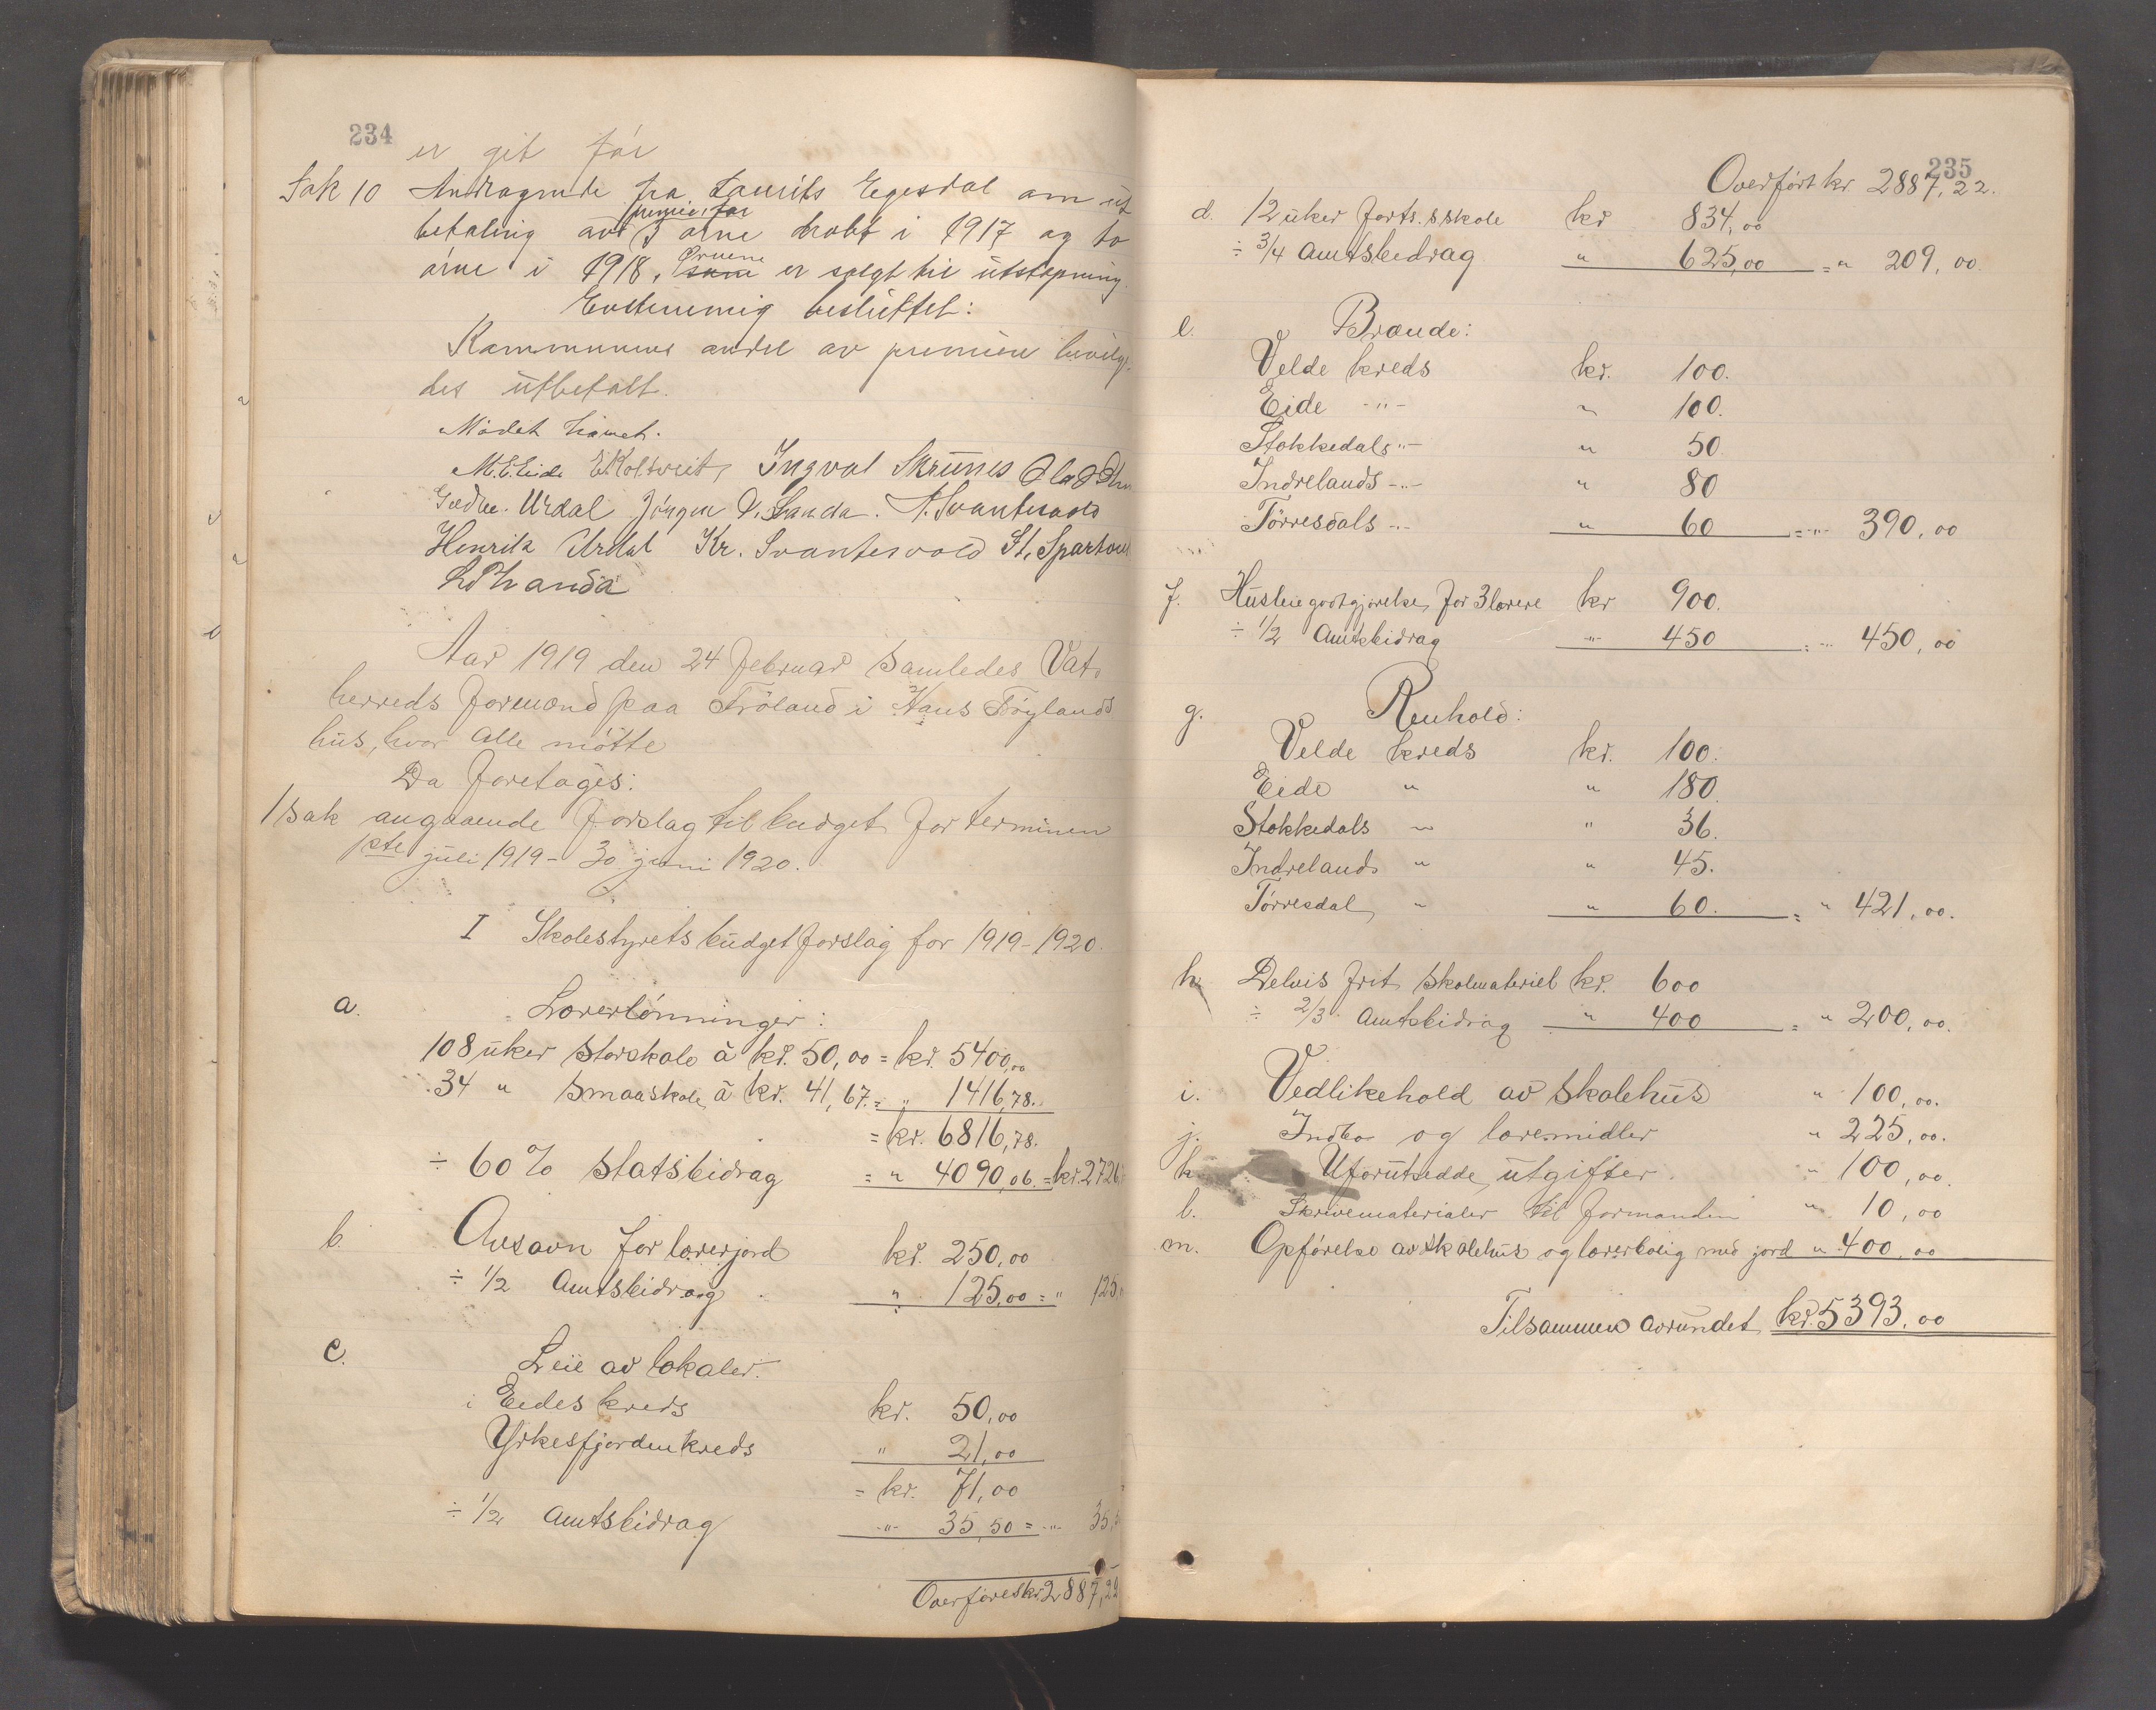 234
er git for
Sak 10 Andragende fra Laurits Egesdal om ut
betaling av premie for 3 ørne dræbt i 1917 og to
ørne i 1918. Ørnene er solgt til utstopning.
Enstemmig besluttet:
Kommunens andel av premien bevilge-
des utbetalt.
Mödet hævet.
M. E. Eide E. Koltveit, Ingval Skrunes
Gudm. Urdal Jörgen O. Sanda. A. Svantesvold
Henrik Urdal Kr. Svantesvold
Aar 1919 den 24 februar samledes Vats
herreds formænd paa Fröland i Hans Fröylands
hus, hvor alle mötte
Da foretages:
1 sak angaaende forslag til budget for terminen
1ste juli 1919 - 30 juni 1920.
I Skolestyrets budgetforslag for 1919-1920.
a. Lærerlönninger:
108 uker storskole à kr. 50,00 = kr. 5400,00
34 " smaaskole à kr. 41,67 = " 1416,78.
= kr. 6816,78.
÷ 60% statsbidrag = " 4090,06. = kr. 2726,
b. Avsavn for lærerjord kr. 250,00
÷ 1/2 Amtsbidrag " 125,00 = " 125,
c. Leie av lokaler.
i Eides kreds kr. 50,00
Yrkesfjorden kreds " 21,00
= kr. 71,00
÷ 1/2 Amtsbidrag -"- 35,50 = -"- 35,5
Overföres kr. 2887,22
235
Overfört kr. 2887,22.
d. 12 uker forts.skole kr 834,00
÷ 3/4 Amtsbedrag " 625,00 = " 209,00.
e. Brænde:
Velde kreds kr. 100.
Eide -"- " 100.
Stokkedals -"- " 50.
Indrelands -"- " 80
Törresdals -"- " 60 = -"- 390,00
f. Husleiegodtgjörelse for 3 lærere kr 900.
÷ 1/2 Amtsbidrag -"- 450 = -"- 450,00
g. Renhold:
Velde kreds kr. 100.
Eide " " 180.
Stokkedals " " 36.
Indrelands " " 45.
Törresdal " " 60. = " 421,00.
h. Delvis frit skolmateriel kr. 600
÷ 2/3 Amtsbidrag " 400 = " 200,00.
i. Vedlikehold av skolehus " 100,00.
j. Indbo og læremidler " 225,00.
k. Uforutsedde utgifter " 100,00.
l. Skrivematerialer til formanden " 10,00
m. Opförelse av skolehus og lærerbolig med jord " 400,00
Tilsammen avrundet kr. 5393,00